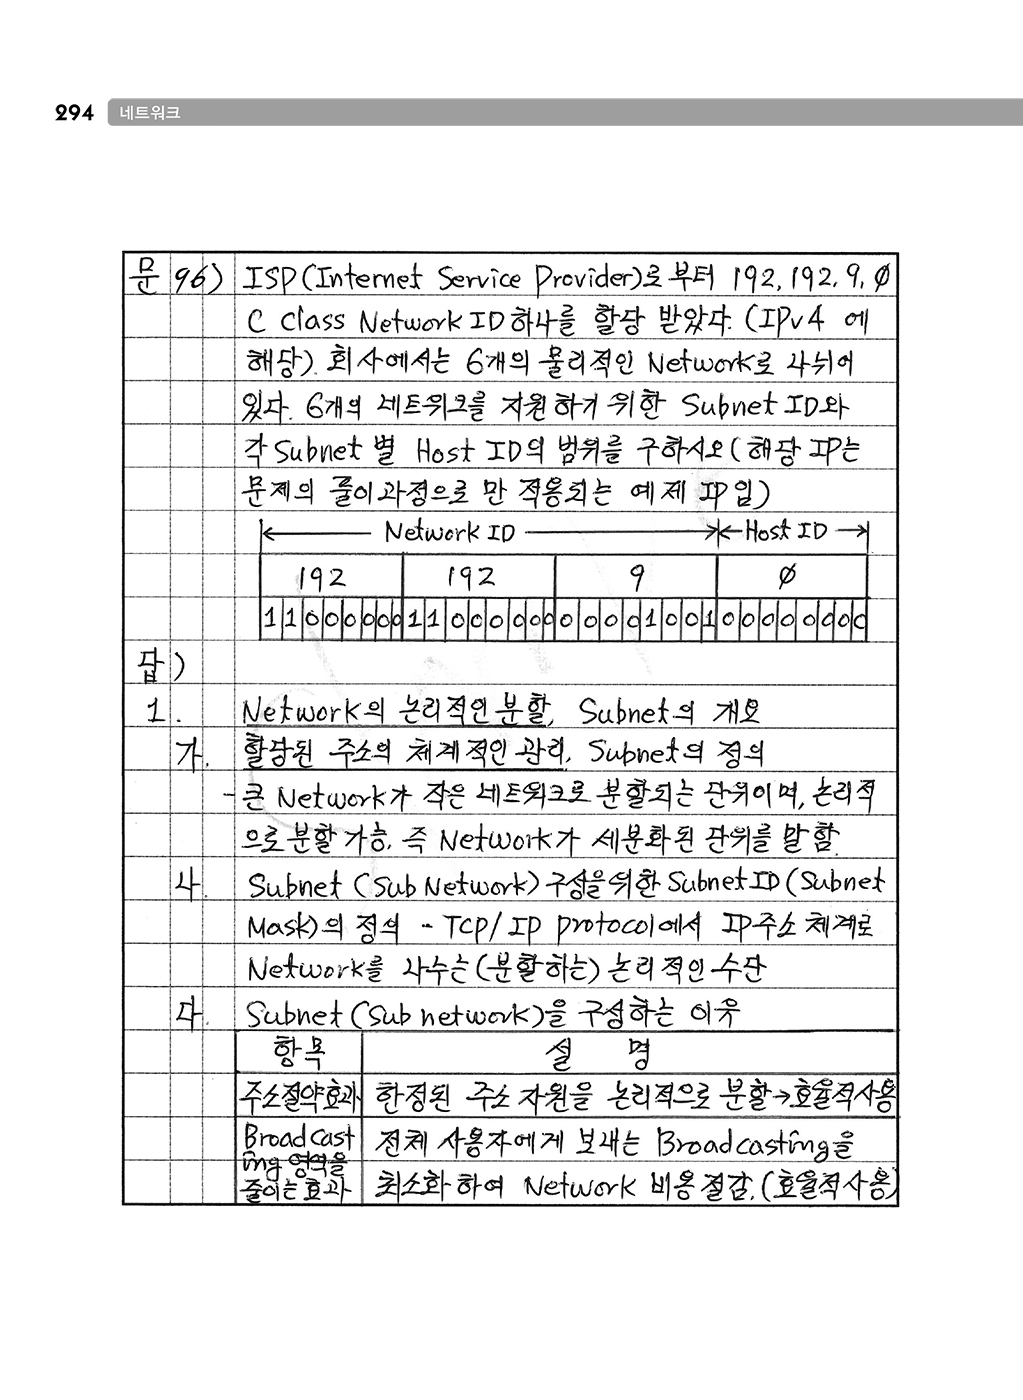 294 네트워크
문 96) ISP(Internet Service Provider)로부터 192, 192. 9. ∅
C Class Network ID 하나를 할당 받았다. (IPv4 에
해당). 회사에서는 6개의 물리적인 Network로 나뉘어
있다. 6개의 네트워크를 지원하기 위한 Subnet ID와
각 Subnet 별 Host ID의 범위를 구하시오 (해당 IP는
문제의 풀이과정으로 만 적용되는 예제 IP임)
Network ID Host ID
192 192 9 ∅
1 1 0 0 0 0 0 0 1 1 0 0 0 0 0 0 0 0 0 0 1 0 0 1 0 0 0 0 0 0 0 0
답)
1. Network의 논리적인 분할, Subnet의 개요
가. 할당된 주소의 체계적인 관리, Subnet의 정의
- 큰 Network가 작은 네트워크로 분할되는 단위이며, 논리적
으로 분할 가능. 즉 Network가 세분화된 단위를 말함.
나. Subnet (Sub Network) 구성을위한 Subnet ID (Subnet
Mask)의 정의 - TCP/IP protocol에서 IP주소 체계로
Network를 나누는 (분할하는) 논리적인 수단
다. Subnet (Sub network)을 구성하는 이유
항목 설 명
주소절약효과 한정된 주소 자원을 논리적으로 분할→효율적사용
Broadcast 전체 사용자에게 보내는 Broadcasting을
ing 영역을
줄이는 효과 최소화 하여 Network 비용 절감. (효율적사용)